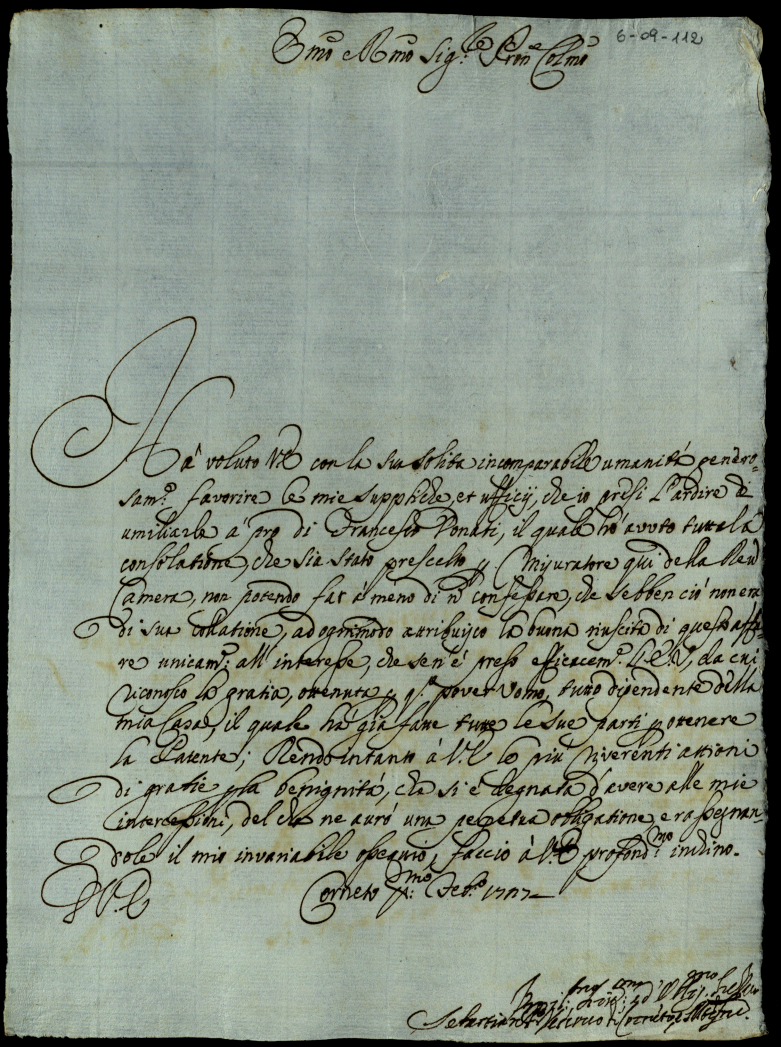 6-09-112
Emo e Rmo Sig.re Pron Colmo
Ha' voluto V.E con la sua solita incomparabile umanità genero-
sam.e favorire le mie suppliche, et ufficij, che io presi l'ardire di
umiliarle a' prò di Francesco Donati, il quale hò avuto tutta la
consolatione, che sia stato prescelto p Misuratore quì della Reu
Camera, non potendo far à meno di n confessare, che sebben ciò non era
di sua collatione, ad ogni modo attribuisco la buona riuscita di questo affa-
re unicam.e all'interesse, che sen'è preso efficacem.e l'E.V, da cui
riconosco la gratia, ottenuta p q.o pover Uomo, tutto dipendente della
mia Casa, il quale ha già fatte tutte le sue parti p ottenere
la Patente; Rendo intanto à V.E le più riverenti attioni
di gratie p la benignità, che si è degnata d'avere alle mie
intercessioni, del che ne aurò una perpetua obligatione, e rassegnan-
dole il mio invariabile ossequio, faccio à V.E profond.mo inchino.
D V.E
Corneto p.mo Feb.o 1707
Sebastiano Vescovo di Corneto, e